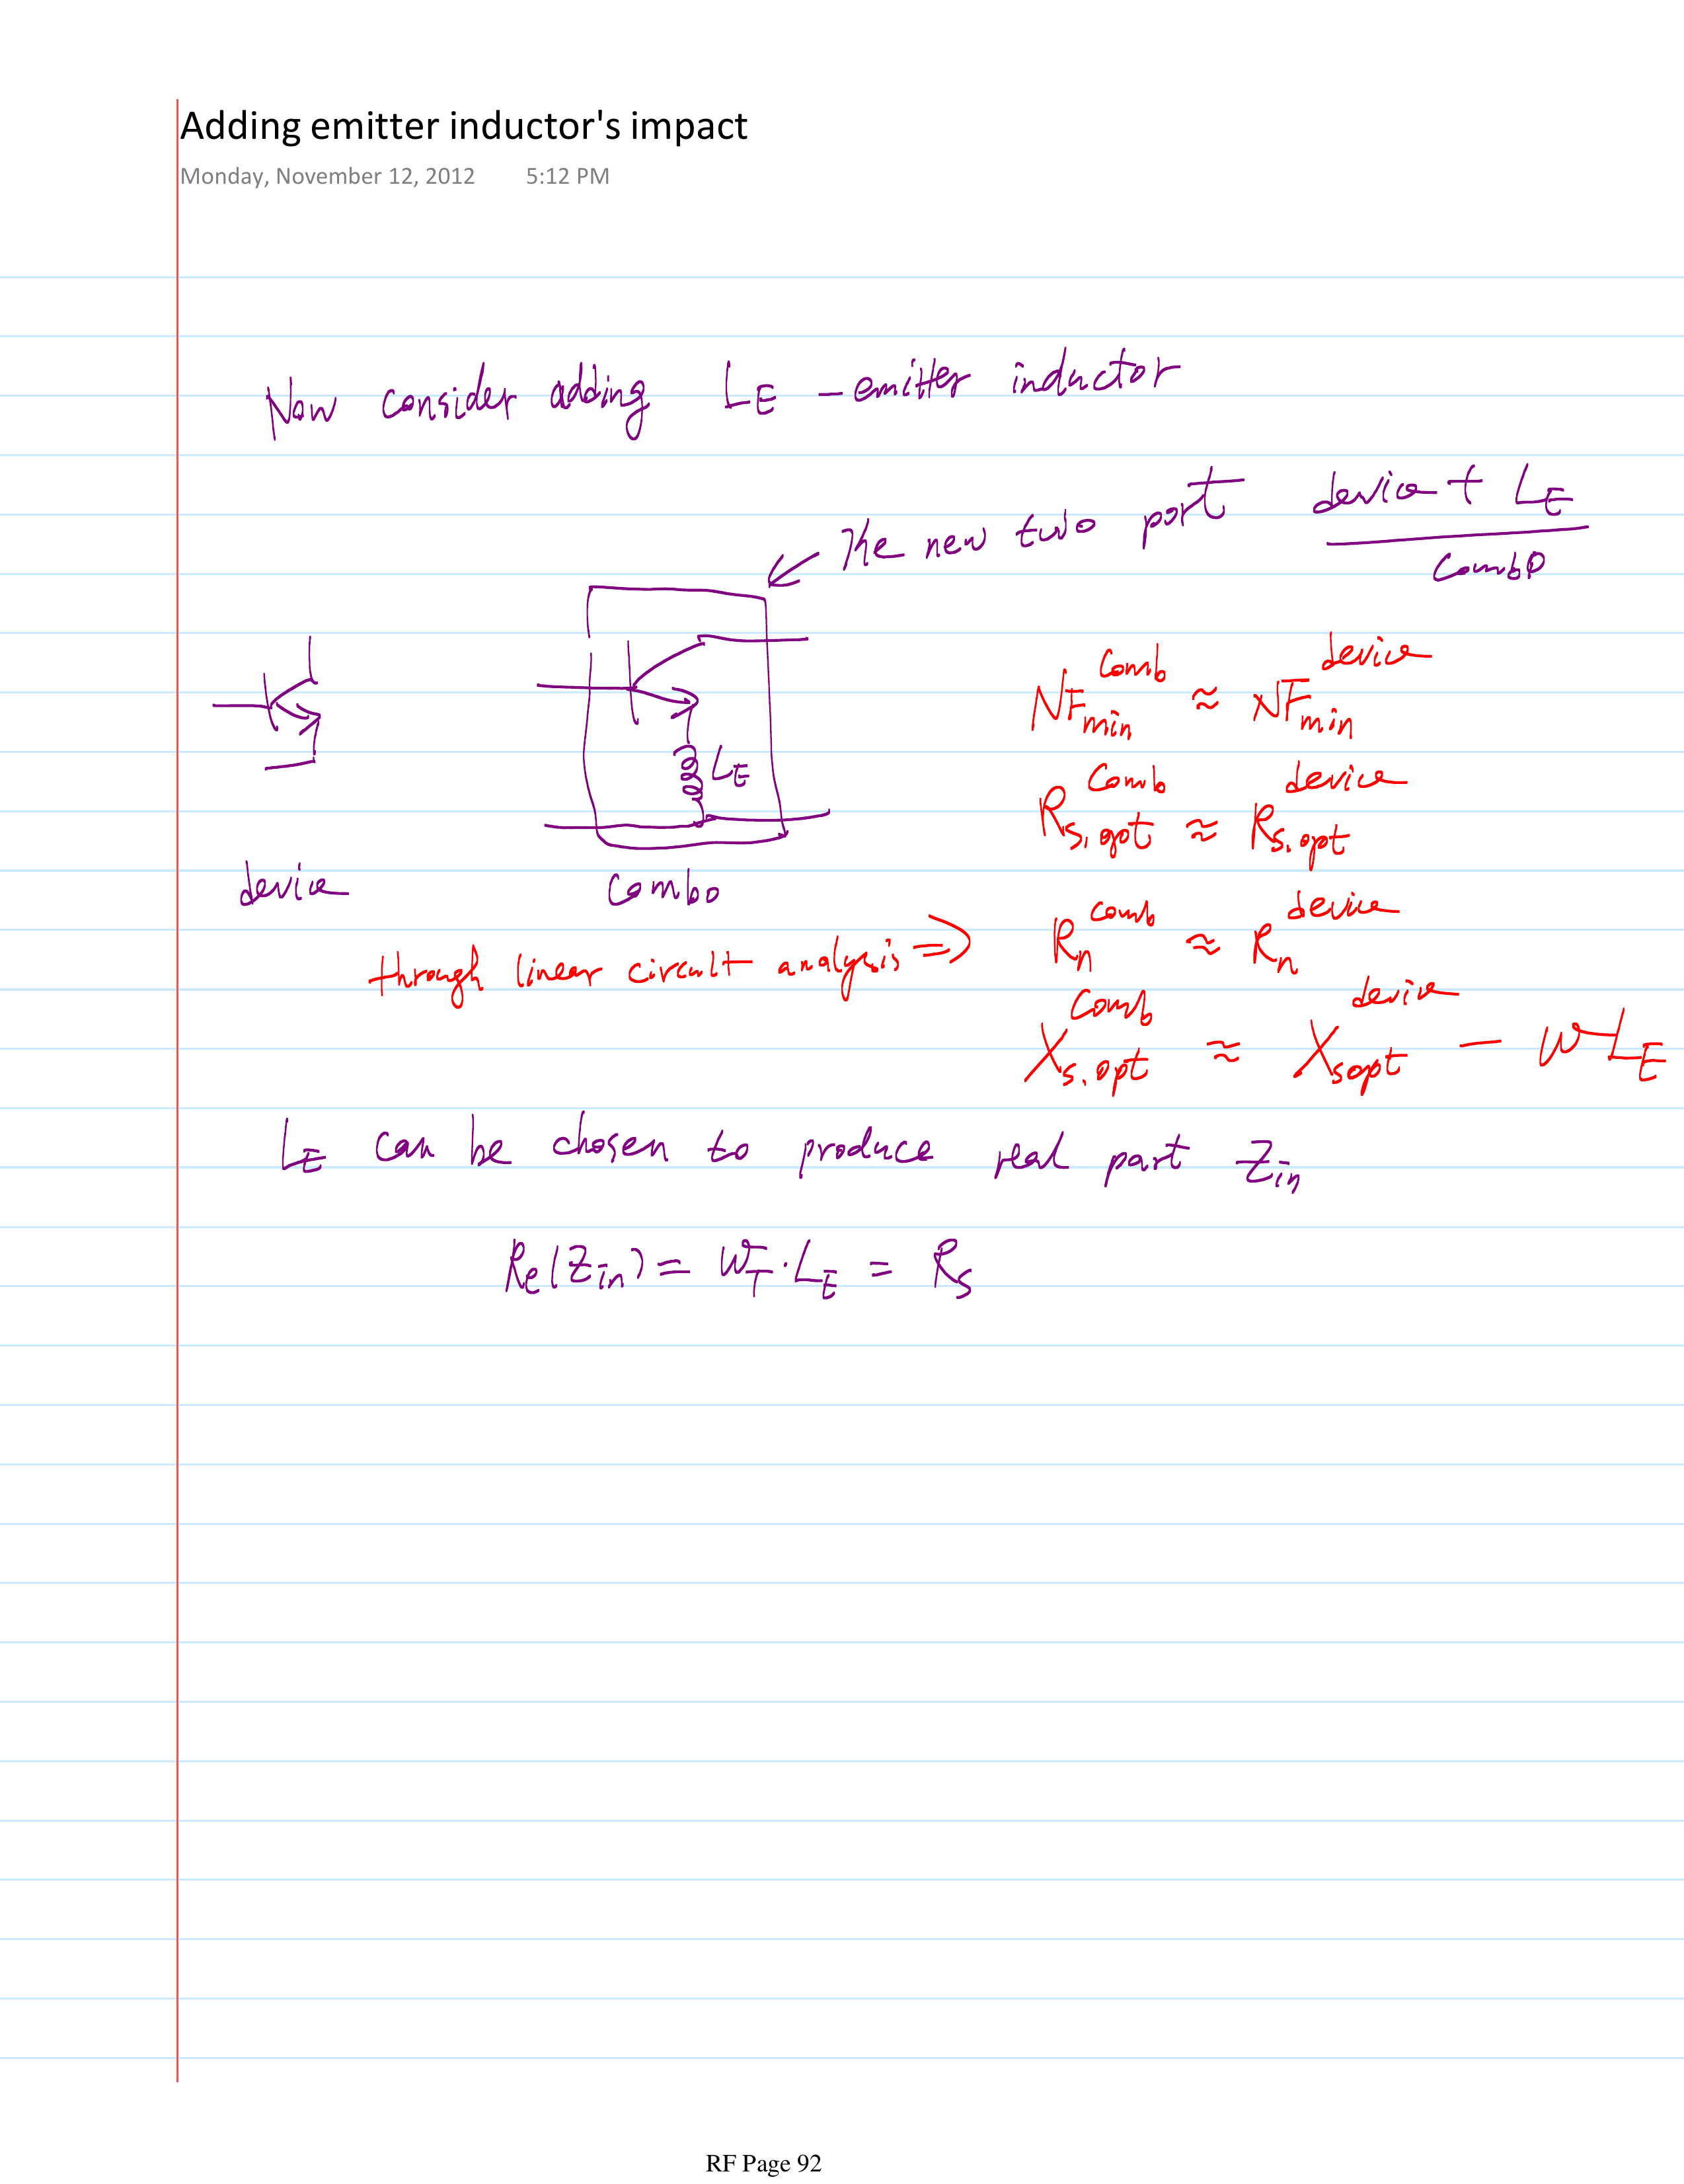 Adding emitter inductor's impact
Monday, November 12, 2012 5:12 PM
Now consider adding L_E - emitter inductor
The new two port device + L_E
combo
NF_min^comb ≈ NF_min^device
L_E
R_s,opt^comb ≈ R_s,opt^device
device combo
R_n^comb ≈ R_n^device
through linear circuit analysis ⇒
X_s,opt^comb ≈ X_sopt^device - ωL_E
L_E can be chosen to produce real part Z_in
Re(Z_in) = ω_T · L_E = R_s
RF Page 92